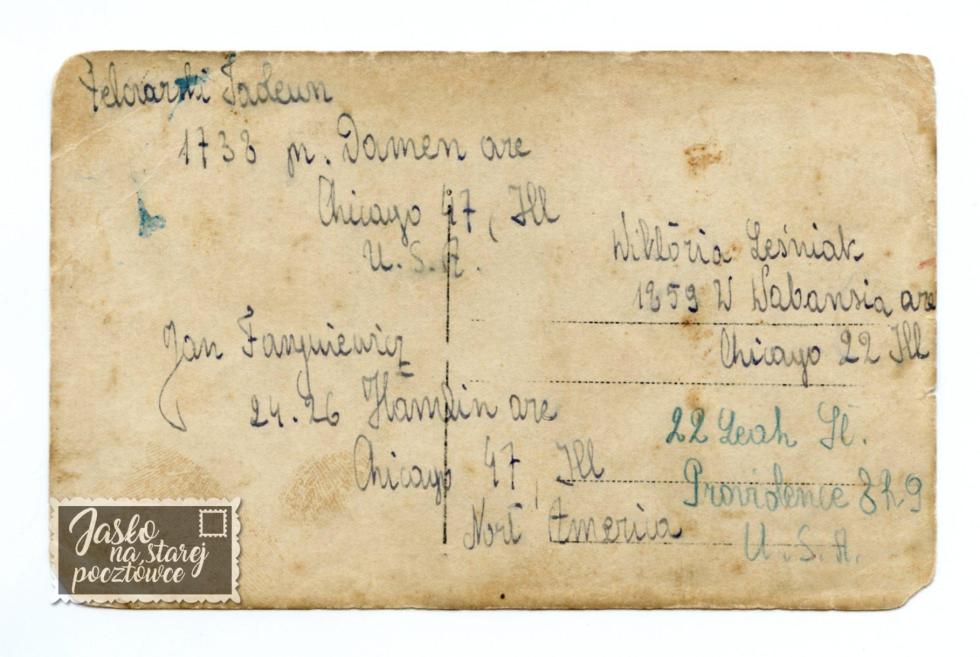 Żelwarski Tadeun
1738 n. Damen ave
Chicago 47, Ill
U. S. A.
Jan Fangniewicz
24.26 Hamlin ave
Chicago 47, Ill
Nort America
Wiktória Leśniak
1859 W Wabansia ave
Chicago 22 Ill
22 Leah St.
Providence 9
U. S. A.
Jasło
na starej
pocztówce